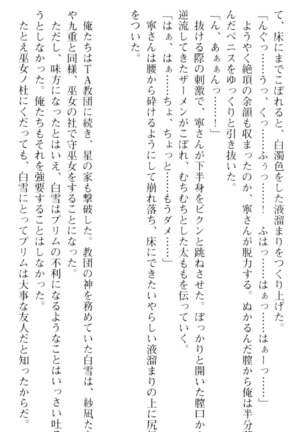 て、床にこぼれると、白濁色をした液溜まりをつくり上げた。
「んぐっ……うっ、くっ……ふぅっ……！　ふはっ……はぁっ……
はぁ……はぁっ……はぁ……はぁーっ……」
　ようやく絶頂の余韻も収まったのか、寧さんが脱力する。ぬかるんだ膣から俺は半分萎
んだペニスをゆっくりと引き抜いた。
「ん、あぁんんっ……！」
　抜ける際の刺激で、寧さんが下半身をビクンと跳ねさせた。ぽっかりと開いた膣口から
逆流してきたザーメンがこぼれ、むちむちとした太ももを伝っていく。
「はぁ、はぁ……ちょ、ちょっと……もうダメ……」
　寧さんは腰から砕けるようにして崩れ落ち、床にできたいやらしい液溜まりの上に尻餅
をついた。
　俺たちはＴＡ教団に続き、星の家も撃破した。教団の神を務めていた白雪は、紗凪た
や九重と同様、巫女の社で守巫女をすることになった。
　ただし、味方になったとはいえ、白雪はプリムの不利になるようなことはいっさい吐
うとしなかった。俺たちもそれを強要することはしなかった。
たとえ巫女ノ杜にくだっても、白雪にとってプリムは大事な友人だと知ったからだ。